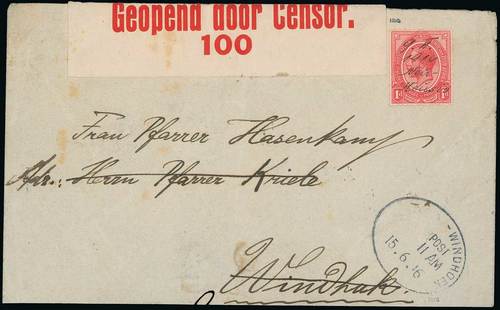 Geopend door Censor.
100
1d 1d
Frau Pfarrer Hasenkamp
Adr.: Herrn Pfarrer Kriele
Windhuk.
WINDHOEK
POST
11 AM
15.6.16